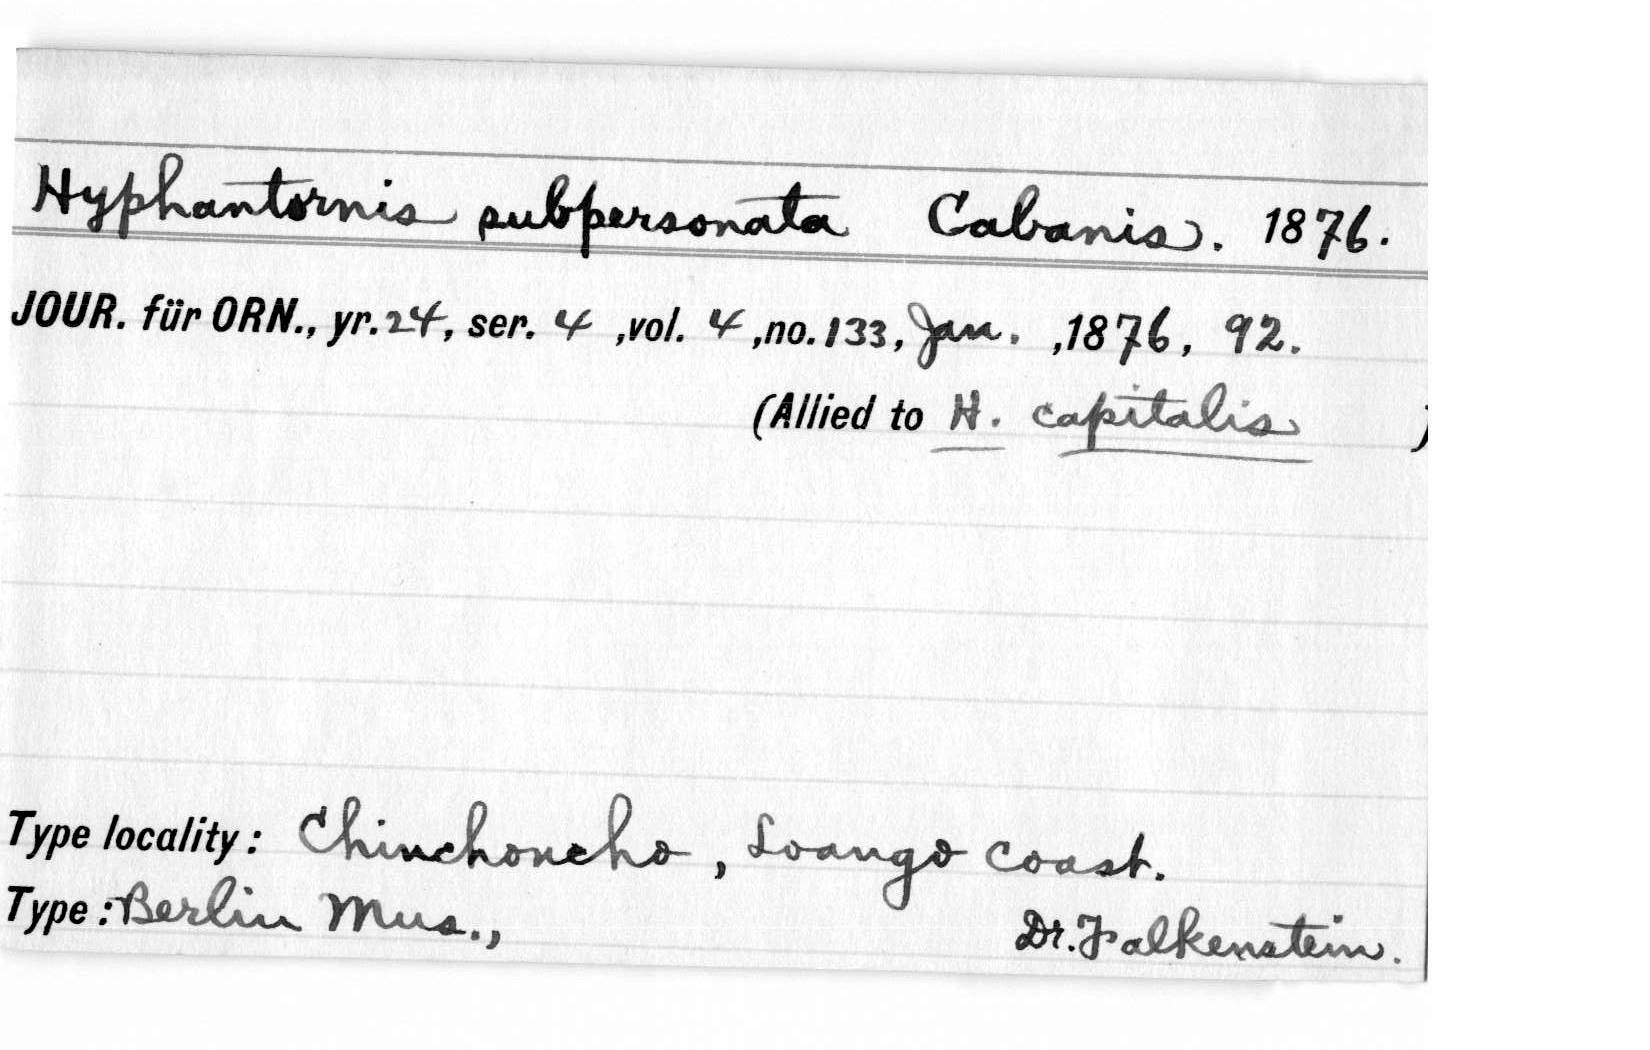 Hyphantornis subpersonata Cabanis. 1876.
JOUR. für ORN., yr. 24, ser. 4 ,vol. 4 ,no. 133, Jan. ,1876, 92.
(Allied to H. capitalis )
Type locality: Chinchoncho, Loango coast.
Type: Berlin Mus., Dr. Falkenstein.